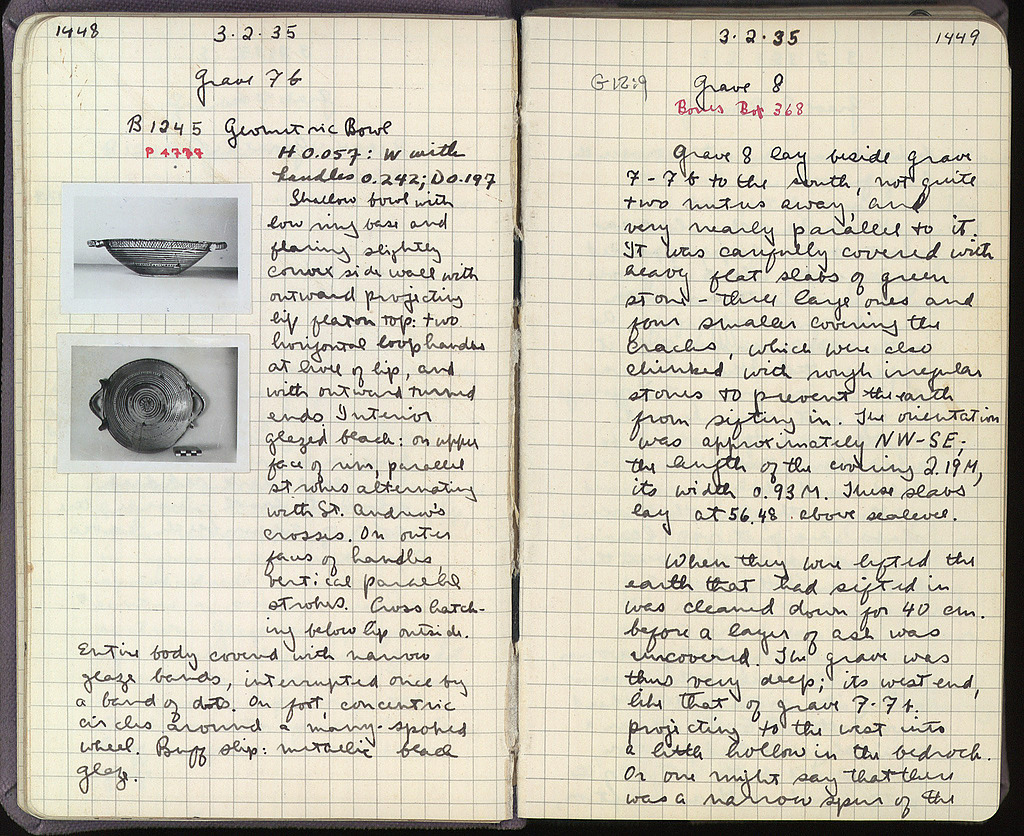 1448
3·2·35
Grave 7b
B 1245 Geometric Bowl
P 4777
H 0.057: W with
handles 0.242; D 0.197
Shallow bowl with
low ring base and
flaring slightly
convex side wall with
outward projecting
lip flat on top: two
horizontal loop handles
at level of lip, and
with outward turned
ends Interior
glazed black: on upper
face of rim, parallel
strokes alternating
with St. Andrew's
crosses. On outer
faces of handles,
vertical parallel
strokes. Cross hatch-
ing below lip outside.
Entire body covered with narrow
glaze bands, interrupted once by
a band of dots. On foot, concentric
circles around a many-spoked
wheel. Buff slip: metallic black
glaze.
3·2·35
1449
G12:9
Grave 8
Bones Box 368
Grave 8 lay beside grave
7-7b to the south, not quite
two metres away, and
very nearly parallel to it.
It was carefully covered with
heavy flat slabs of green
stone - three large ones and
four smaller covering the
cracks, which were also
chinked with rough irregular
stones to prevent the earth
from sifting in. The orientation
was approximately NW-SE;
the length of the covering 2.19M,
its width 0.93 M. These slabs
lay at 56.48 above sealevel.
When they were lifted the
earth that had sifted in
was cleaned down for 40 cm.
before a layer of ash was
uncovered. The grave was
thus very deep; its west end,
like that of grave 7-7b.
projecting to the west into
a little hollow in the bedrock.
Or one might say that there
was a narrow spur of the